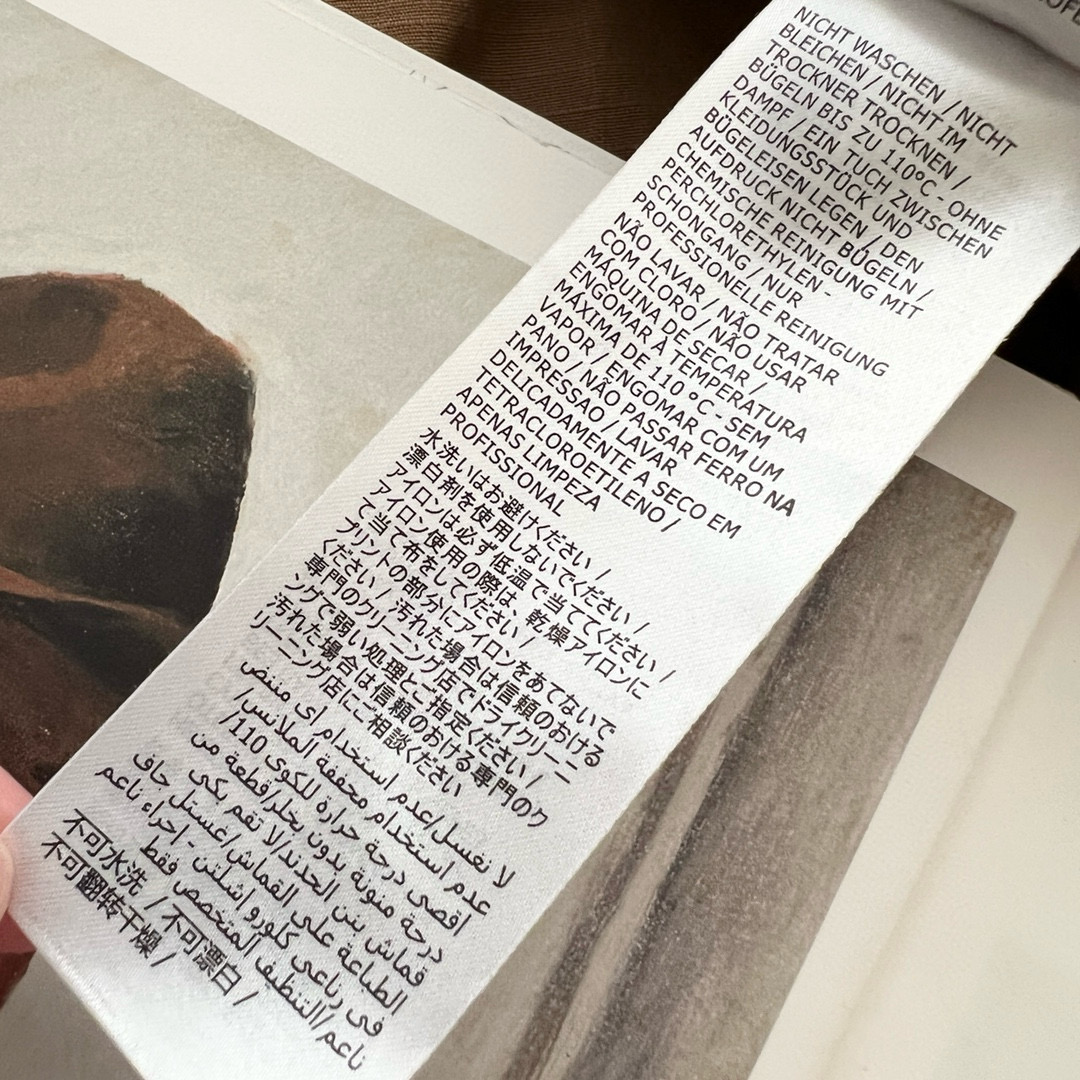 NICHT WASCHEN / NICHT
BLEICHEN / NICHT IM
TROCKNER TROCKNEN /
BÜGELN BIS ZU 110°C - OHNE
DAMPF / EIN TUCH ZWISCHEN
KLEIDUNGSSTÜCK UND
BÜGELEISEN LEGEN / DEN
AUFDRUCK NICHT BÜGELN /
CHEMISCHE REINIGUNG MIT
PERCHLORETHYLEN -
SCHONGANG / NUR
PROFESSIONELLE REINIGUNG
NÃO LAVAR / NÃO TRATAR
COM CLORO / NÃO USAR
MÁQUINA DE SECAR /
ENGOMAR À TEMPERATURA
MÁXIMA DE 110 °C - SEM
VAPOR / ENGOMAR COM UM
PANO / NÃO PASSAR FERRO NA
IMPRESSAO / LAVAR
DELICADAMENTE A SECO EM
TETRACLOROETILENO /
APENAS LIMPEZA
PROFISSIONAL
水洗いはお避けください /
漂白剤を使用しないでください /
アイロンは必ず低温で当ててください /
アイロン使用の際は、乾燥アイロンに
て当て布をしてください /
プリントの部分にアイロンをあてないで
ください / 汚れた場合は信頼のおける
専門のクリーニング店でドライクリーニ
ングで弱い処理とご指定ください /
汚れた場合は信頼のおける専門のク
リーニング店にご相談ください
لا تغسل/عدم استخدام اى مبيض
عدم استخدام مجففة الملابس/
أقصى درجة حرارة للكوى 110/
درجة مئوية بدون بخار/قطعة من
قماش بين الحديد/لا تقم بكى
الطباعة على القماش/غستل جاف
فى رباعى كلورو اشلتن - إجراء ناعم
ناعم/التنظيف المتخصص فقط
不可水洗 / 不可漂白 /
不可翻转干燥 /